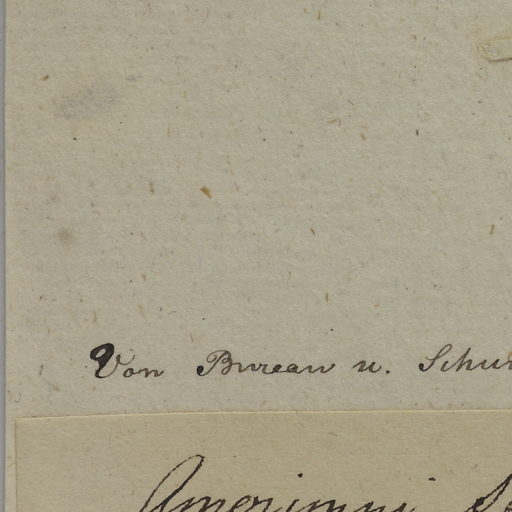 Von Bureau u. Schur
Amerimni